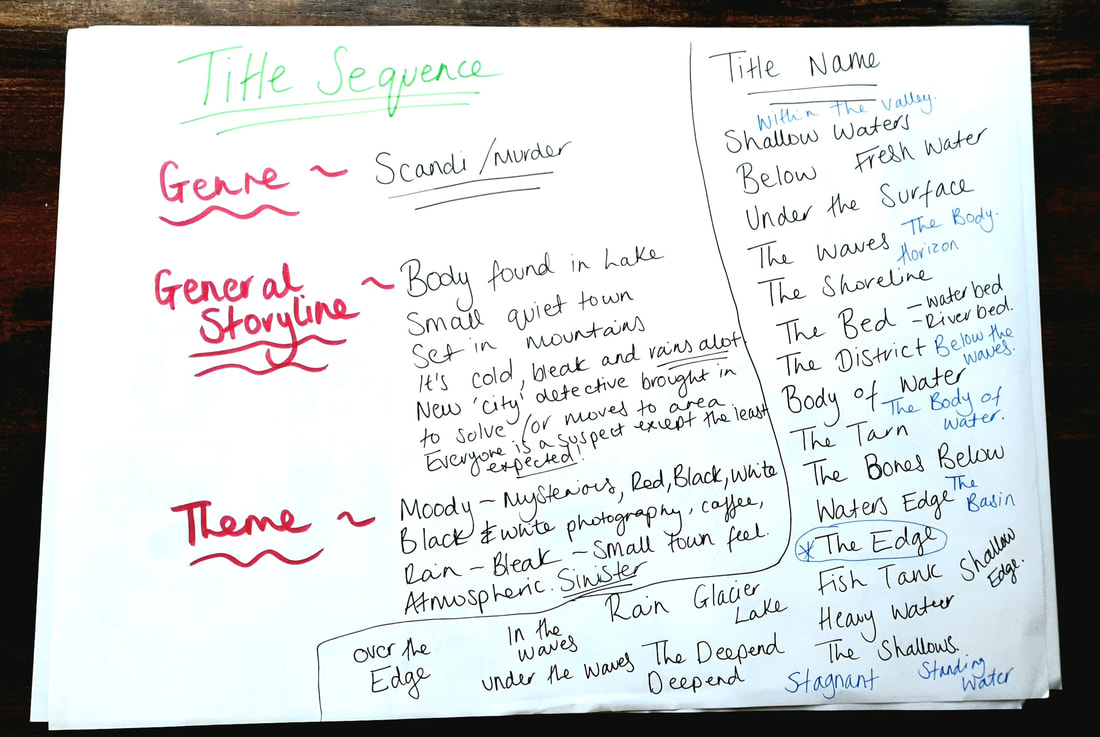 Title Sequence
Genre ~ Scandi/Murder
General Storyline ~ Body found in Lake
Small quiet town
Set in mountains
It's cold, bleak and rains alot.
New 'city' detective brought in
to solve /or moves to area
Everyone is a suspect except the least
expected!
Theme ~ Moody - Mysterious, Red, Black, White
Black & white photography, coffee,
Rain - Bleak - Small Town feel.
Atmospheric. Sinister
Title Name
Within The Valley.
Shallow Waters
Below Fresh Water
Under the Surface
The Waves The Body.
Horizon
The Shoreline
The Bed - water bed
- River bed.
The District Below the
waves.
Body of Water
The Body of
Water.
The Tarn
The Bones Below
Waters Edge The
Basin
* The Edge
Fish Tank Shallow
Edge.
Heavy Water
The Shallows.
Stagnant Standing
Water
over the
Edge
In the
waves
under the waves
Rain Glacier
Lake
The Deepend
Deepend